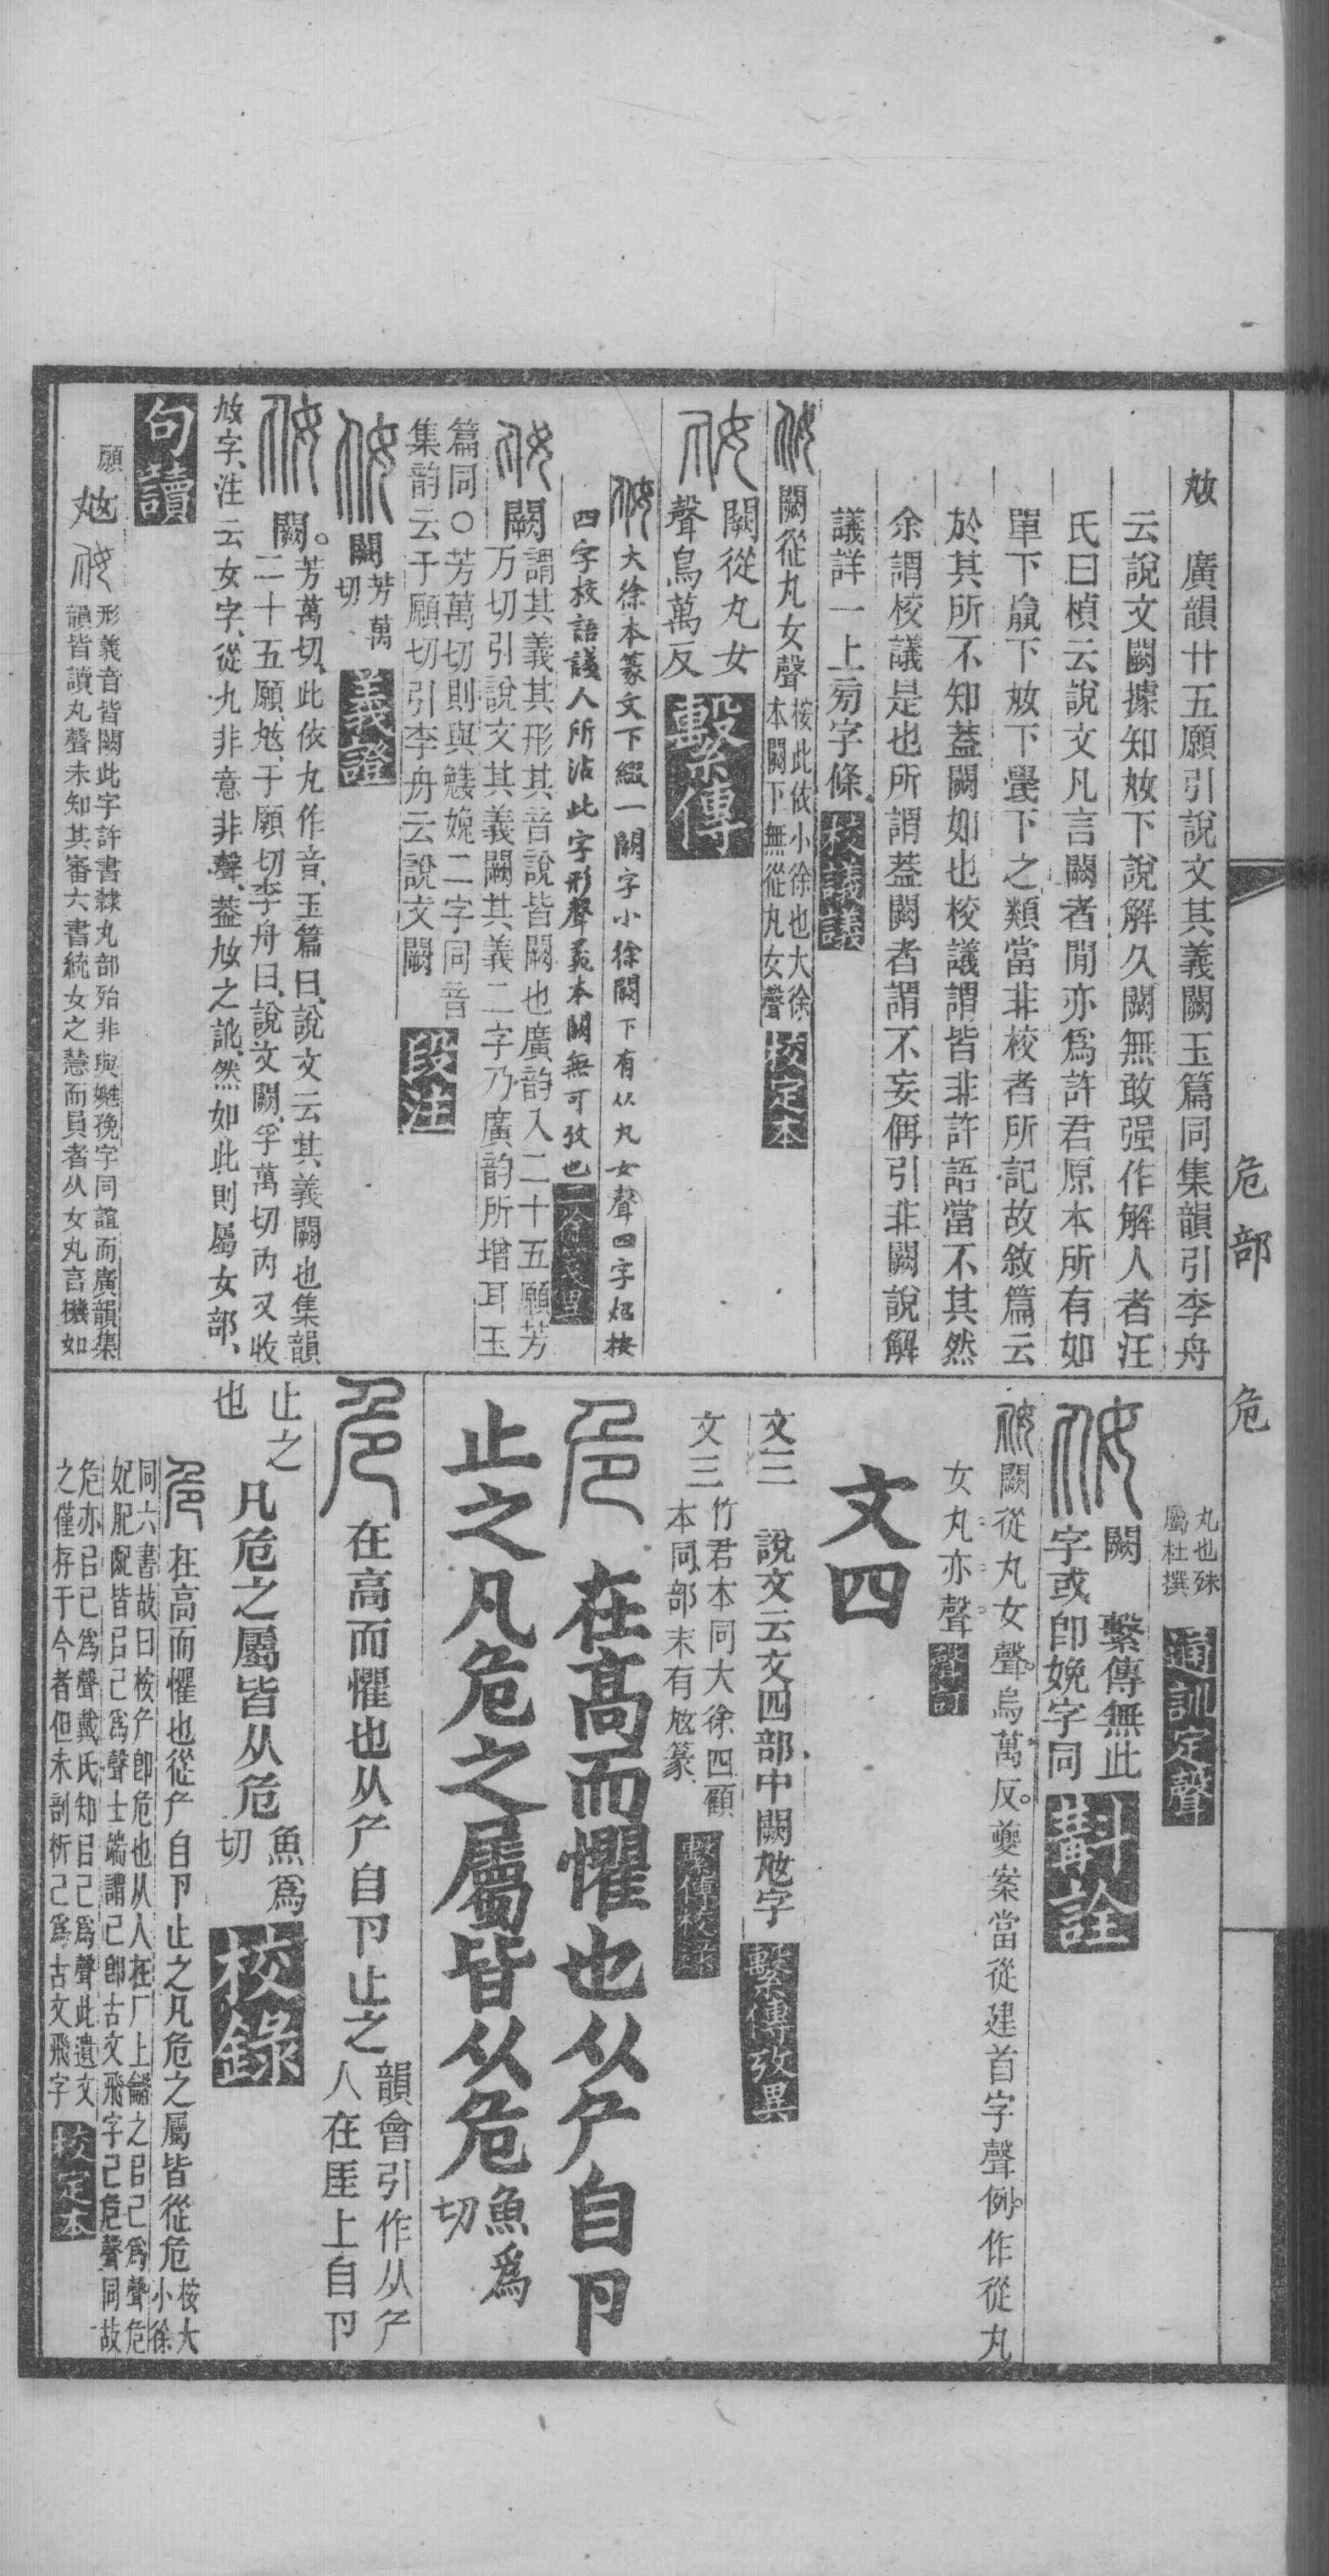 奿　廣韻廿五願引說文其義闕玉篇同集韻引李舟
云說文闕據知奿下說解久闕無敢强作解人者汪
氏曰楨云說文凡言闕者閒亦爲許君原本所有如
單下㒽下奿下舋下之類當非校者所記故敘篇云
於其所不知蓋闕如也校議謂皆非許語當不其然
余謂校議是也所謂蓋闕者謂不妄偁引非闕說解
議詳一上㫄字條 校議議
闕從丸女聲 桉此依小徐也大徐
本闕下無從丸女聲 校定本
闕從丸女
聲烏萬反 繫傳
大徐本篆文下綴一闕字小徐闕下有从丸女聲四字妃按
四字校語議人所沾此字形聲義本闕無可攷也
闕 謂其義其形其音說皆闕也廣韵入二十五願芳
万切引說文其義闕其義二字乃廣韵所增耳玉
篇同○芳萬切則與𡤚娩二字同音
集韵云于願切引李舟云說文闕 段注
闕 芳萬
切 義證
闕。芳萬切、此依九作音、玉篇曰、說文云其義闕也集韻
二十五願、奿、于願切李舟曰、說文闕、孚萬切內又收
奿字、注云女字、從九非意非聲、蓋奿之訛、然如此則屬女部、
句讀
願 奿 形義音皆闕此字許書隸丸部殆非與嬎挽字同誼而廣韻集
韻皆讀丸聲未知其審六書統女之慧而員者从女丸言機如
丸也殊
屬杜撰 通訓定聲
闕 繫傳無此
字或卽娩字同 斠詮
闕從丸女聲。烏萬反。夔案當從建首字聲例。作從丸
女丸亦聲。
文四
文三　說文云文四部中闕奿字 繫傳攷異
文三 竹君本同大徐四顧
本同部末有奿篆 繫傳校錄
在高而懼也从厃自卪
止之凡危之屬皆从危 魚爲
切
在高而懼也从厃自卪止之 韻會引作从厃
人在厓上自卪
止之
也 凡危之屬皆从危 魚爲
切 校錄
在高而懼也從厃自卪止之凡危之屬皆從危 桉大
小徐
同六書故曰桉厃卽危也从人在厂上𨸏之㠯己爲聲危
妃肥配皆㠯己爲聲士端謂己卽古文飛字己危聲同故
危亦㠯己爲聲戴氏知㠯己爲聲此遺文
之僅存于今者但未剖析己爲古文飛字 校定本
危部　危